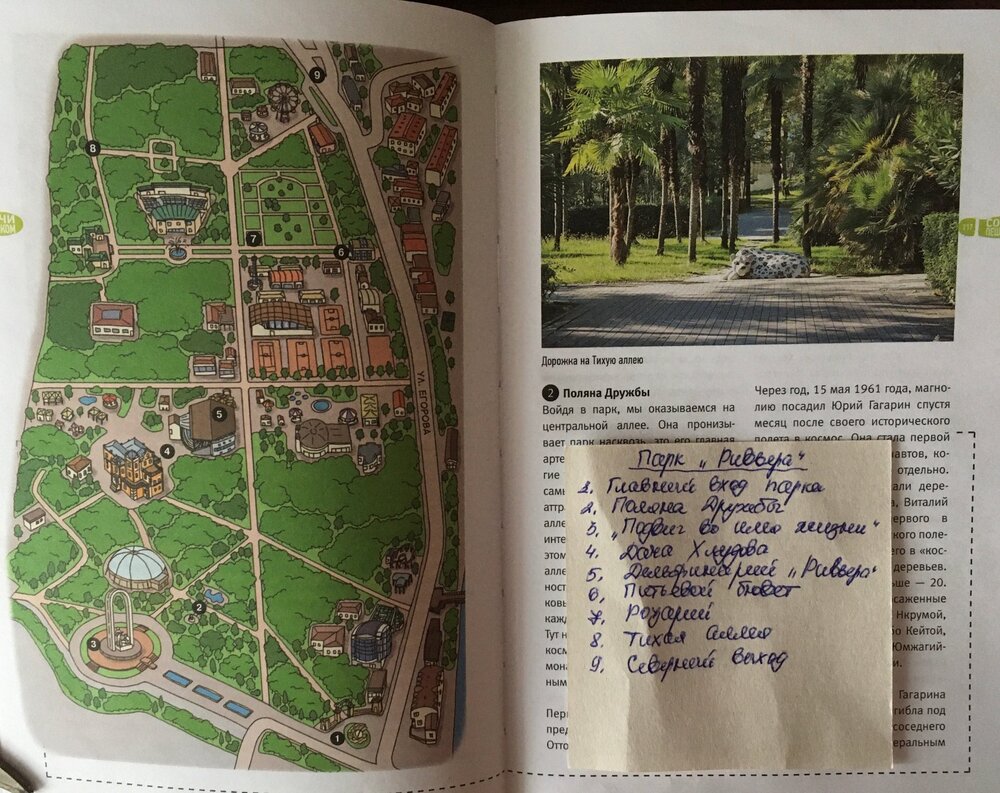 ЧИ
КОМ
9
8
7
6
УЛ. ЕГОРОВА
5
4
2
3
1
Дорожка на Тихую аллею
2 Поляна Дружбы
Войдя в парк, мы оказываемся на
центральной аллее. Она пронизы-
вает парк насквозь, это его главная
арте
гие
самы
аттр
алле
инте
этом
алле
ност
ковы
кажд
Тут н
косм
мона
ным
Пер
пред
Отто
Через год, 15 мая 1961 года, магно-
лию посадил Юрий Гагарин спустя
месяц после своего исторического
полета в космос. Она стала первой
навтов, ко-
отдельно.
али дере-
а, Виталий
ервого в
кого поле-
его в «кос-
деревьев.
ьше — 20.
саженные
Нкрумой,
бо Кейтой,
Юмжагий-
и.
Гагарина
гибла под
соседнего
еральным
Парк „Ривьера"
1. Главный вход парка
2. Поляна Дружбы
3. „Подвиг во имя жизни"
4. Дача Хлудова
5. Дельфинарий „Ривьера"
6. Питьевой бювет
7. Розарий
8. Тихая аллея
9. Северный выход